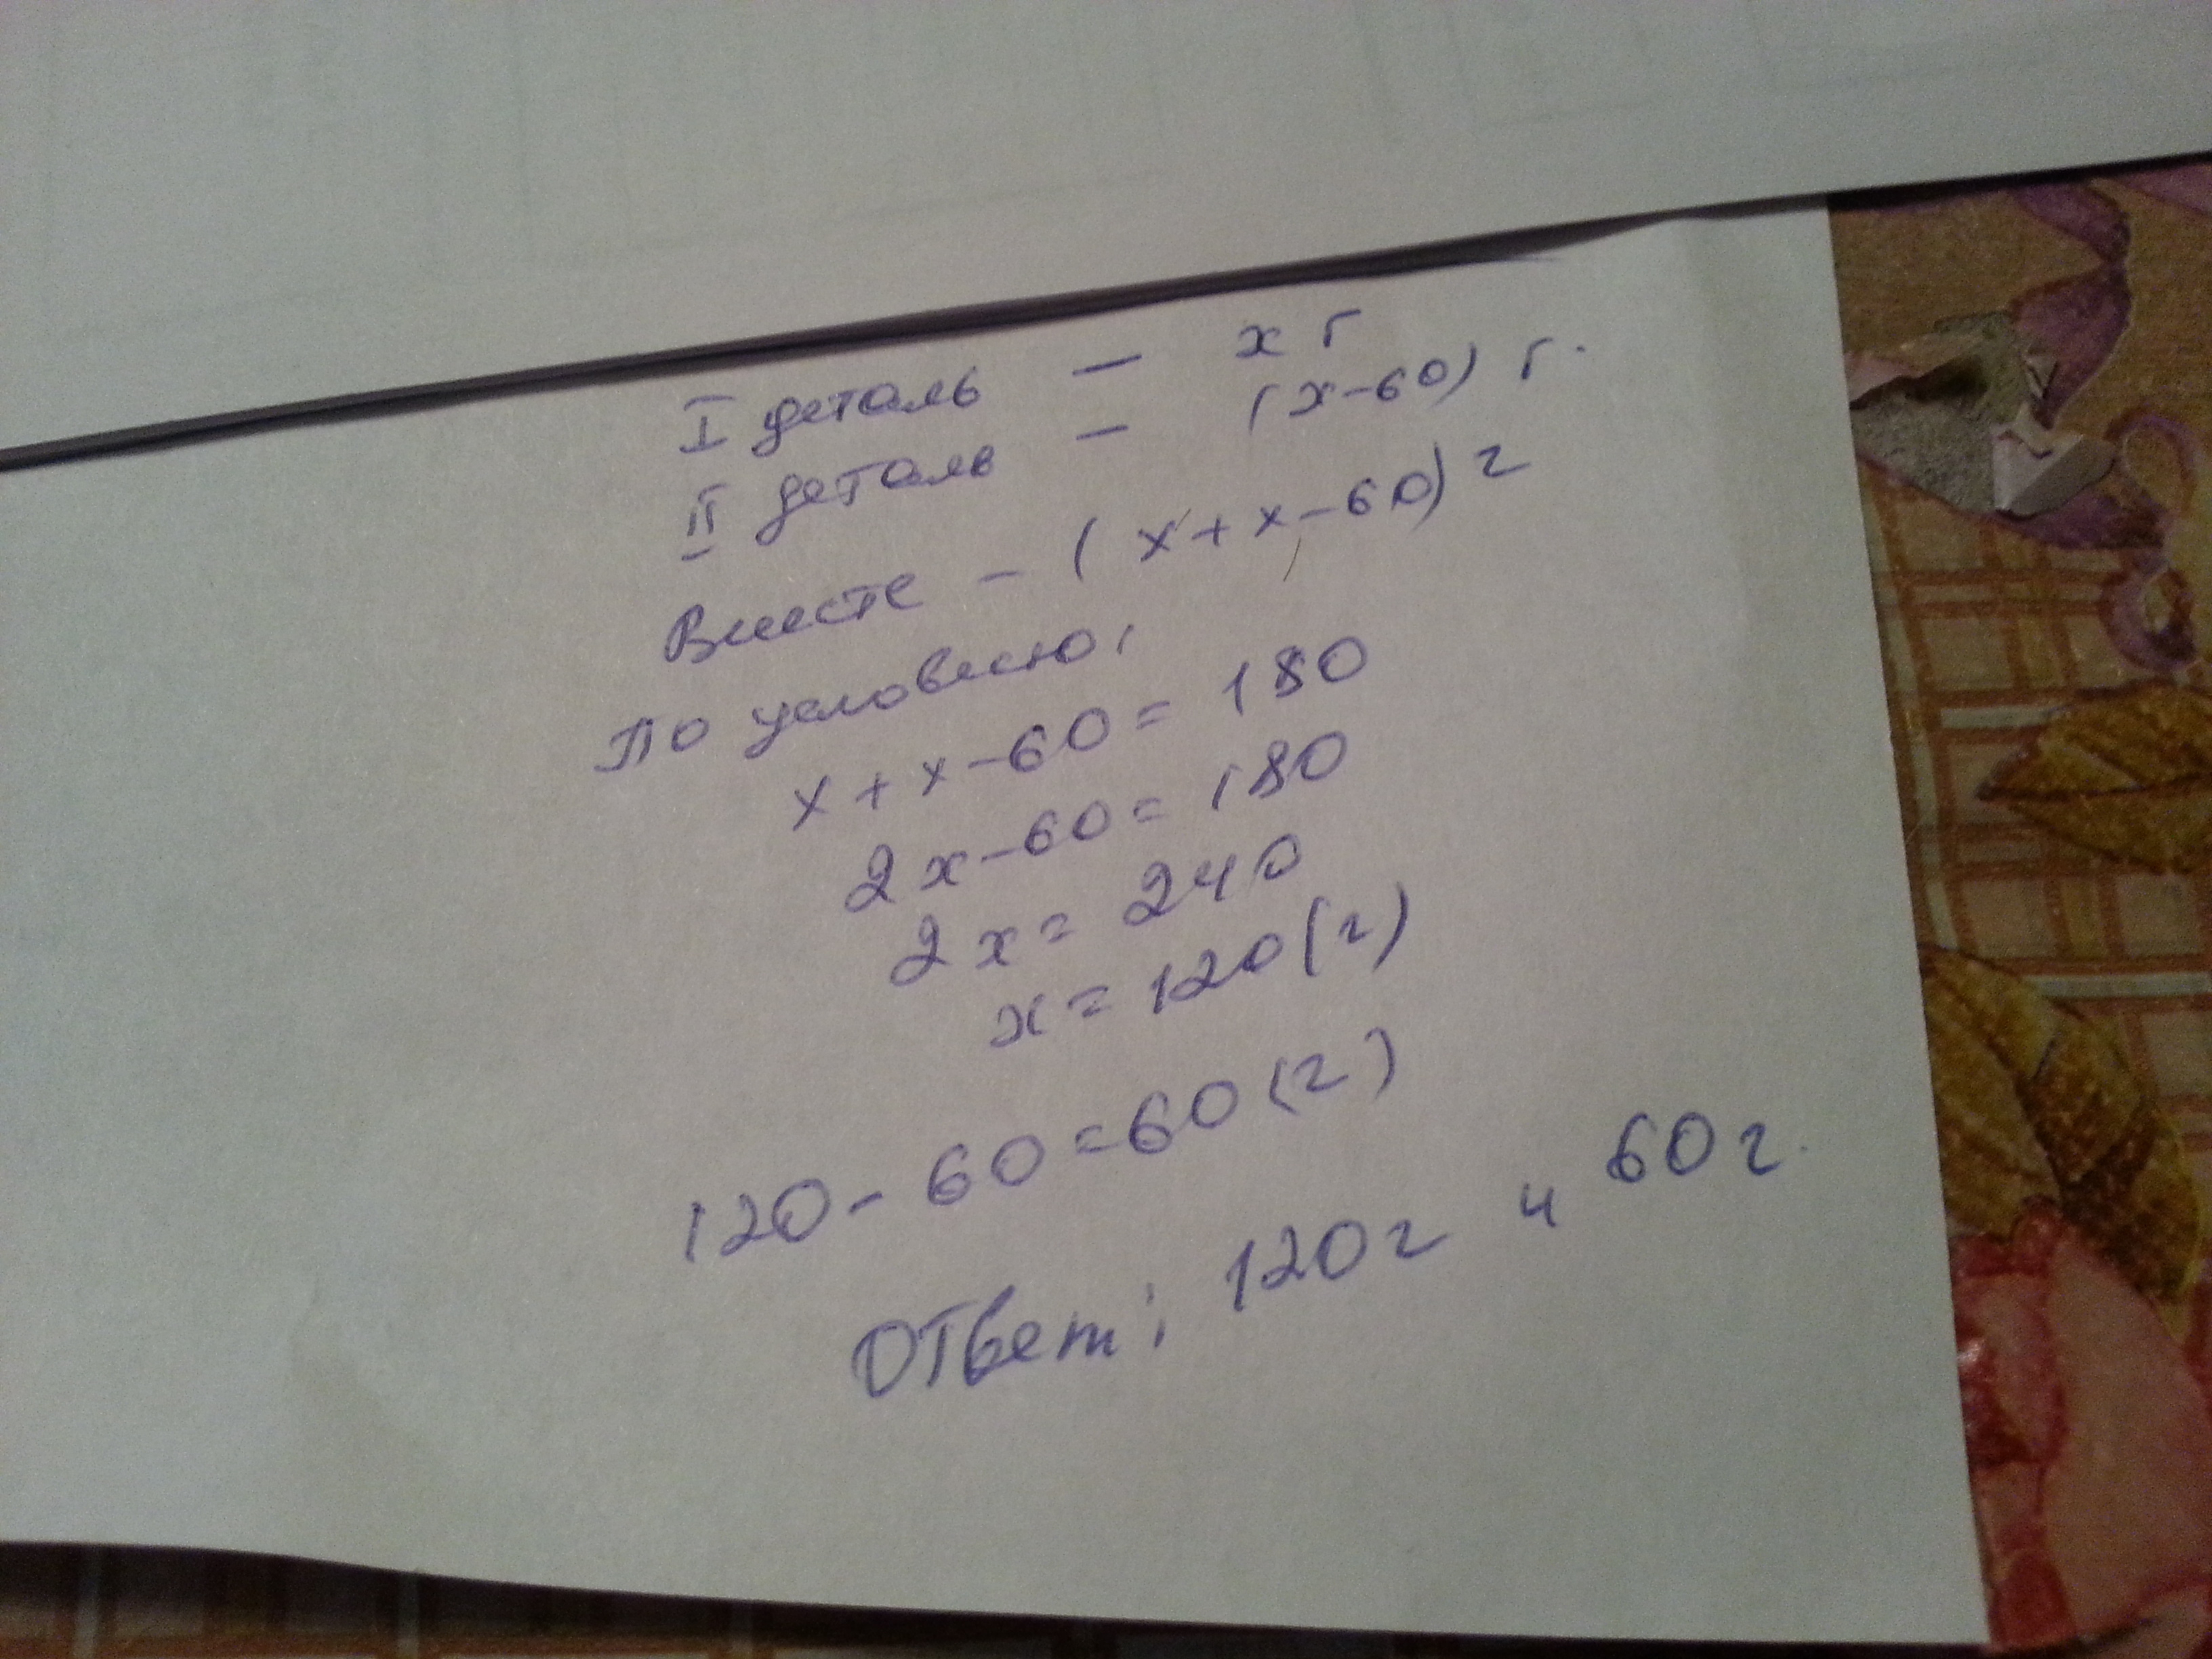 I деталь — х г
II деталь — (х-60) г.
Вместе - (х+х-60) г
По условию:
х+х-60=180
2х-60=180
2х=240
х=120(г)
120-60=60(г)
Ответ: 120г и 60г.